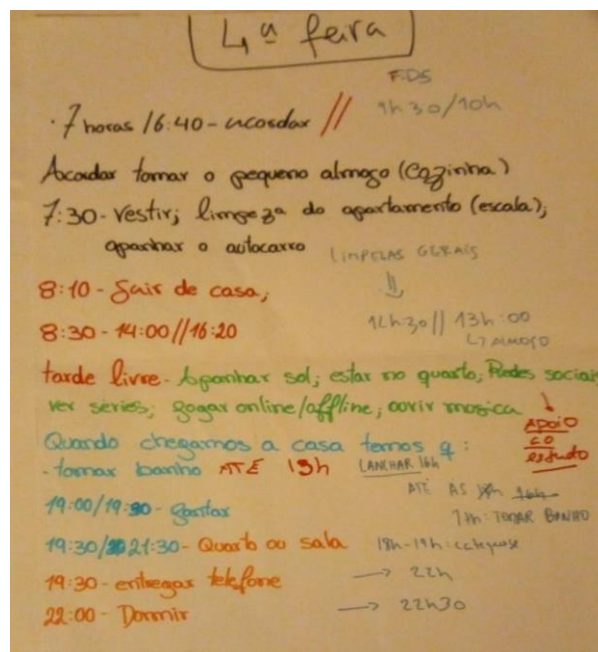 4ª feira
FDS
· 7 horas /6:40 - acordar //
9h30/10h
Acordar tomar o pequeno almoço (cozinha)
7:30 - Vestir; limpeza do apartamento (escala);
apanhar o autocarro
LIMPEZAS GERAIS
8:10 - Sair de casa;
8:30 - 14:00//16:20
12h30// 13h:00
↳ ALMOÇO
tarde livre - Apanhar sol; estar no quarto; Redes sociais
ver séries; gogar online/offline; ouvir mosica
APOIO
AO
estudo
Quando chegamos a casa temos q:
- tomar banho ATÉ 19h
LANCHAR 16h
ATÉ AS
19h: TOMAR BANHO
19:00/19:30 - Gantar
19:30/21:30 - Quarto ou sala
18h-19h: catequese
19:30 - entregar telefone
→ 22h
22:00 - Dormir
→ 22h30